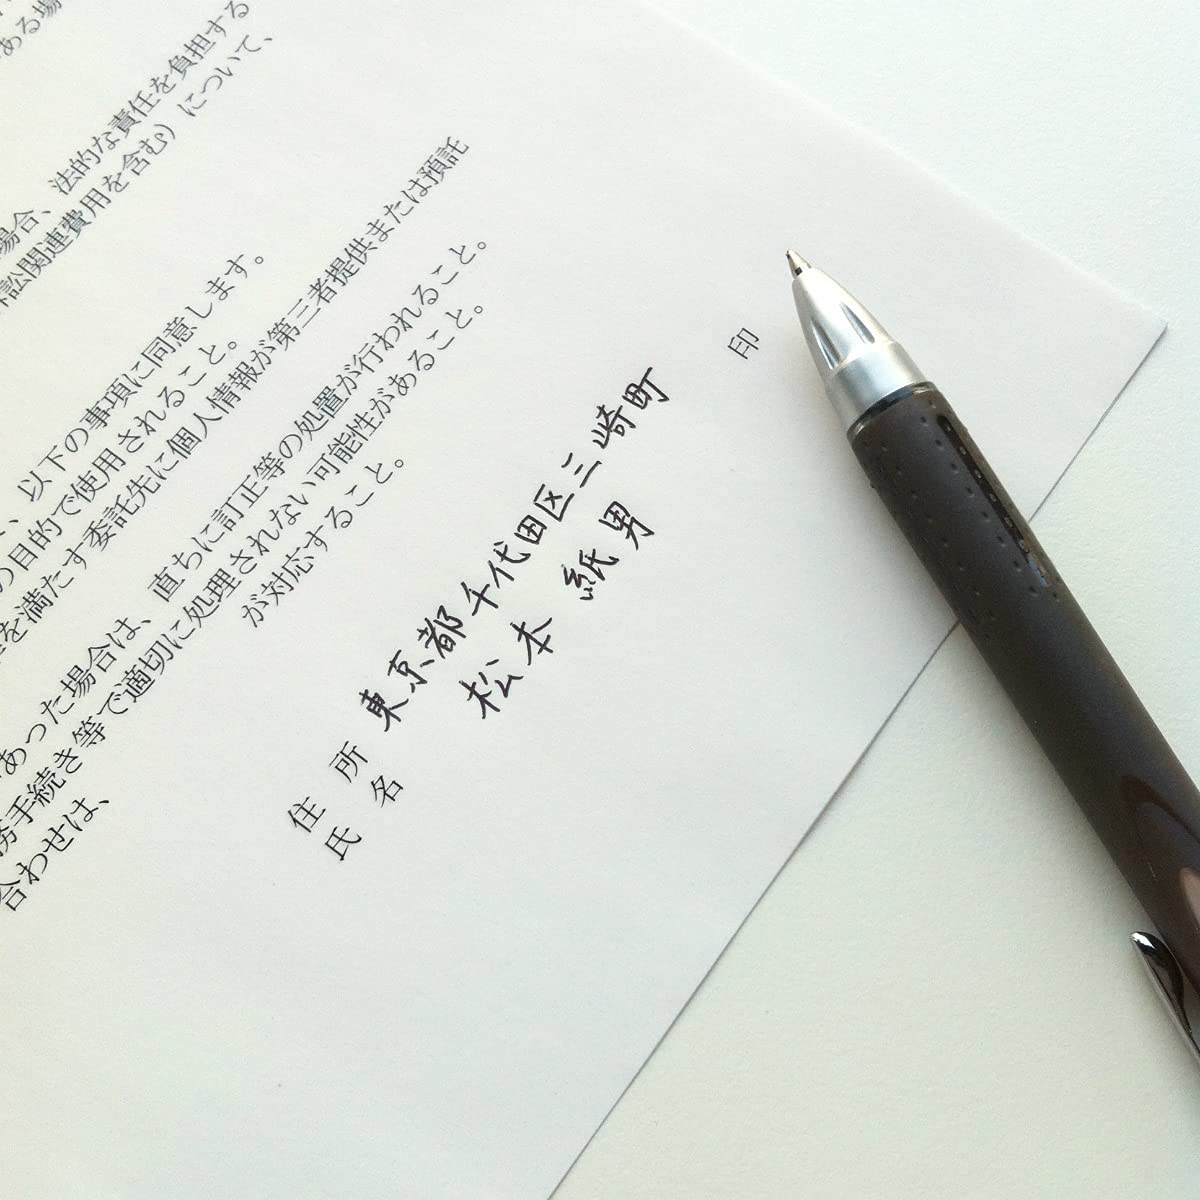 ある場
場合、法的な責任を負担する
訟関連費用を含む）について、
、以下の事項に同意します。
の目的で使用されること。
を満たす委託先に個人情報が第三者提供または預託
あった場合は、直ちに訂正等の処置が行われること。
務手続き等で適切に処理されない可能性があること。
合わせは、
が対応すること。
住所 東京都千代田区三崎町
氏名 松本 紙男 印